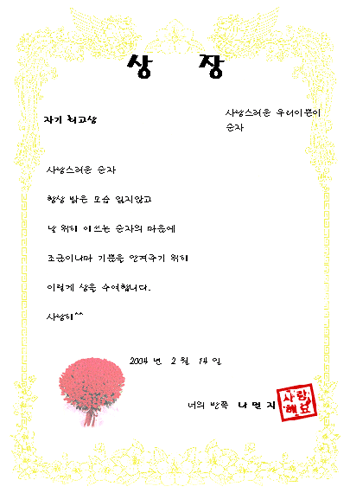 상 장
자기 최고상
사랑스러운 우리이쁜이
순자
사랑스러운 순자
항상 밝은 모습 잃지않고
날 위해 애쓰는 순자의 마음에
조금이나마 기쁨을 안겨주기 위해
이렇게 상을 수여합니다.
사랑해^^
2004 년 2 월 14 일
너의 반쪽 나 먼 지
사랑
해요